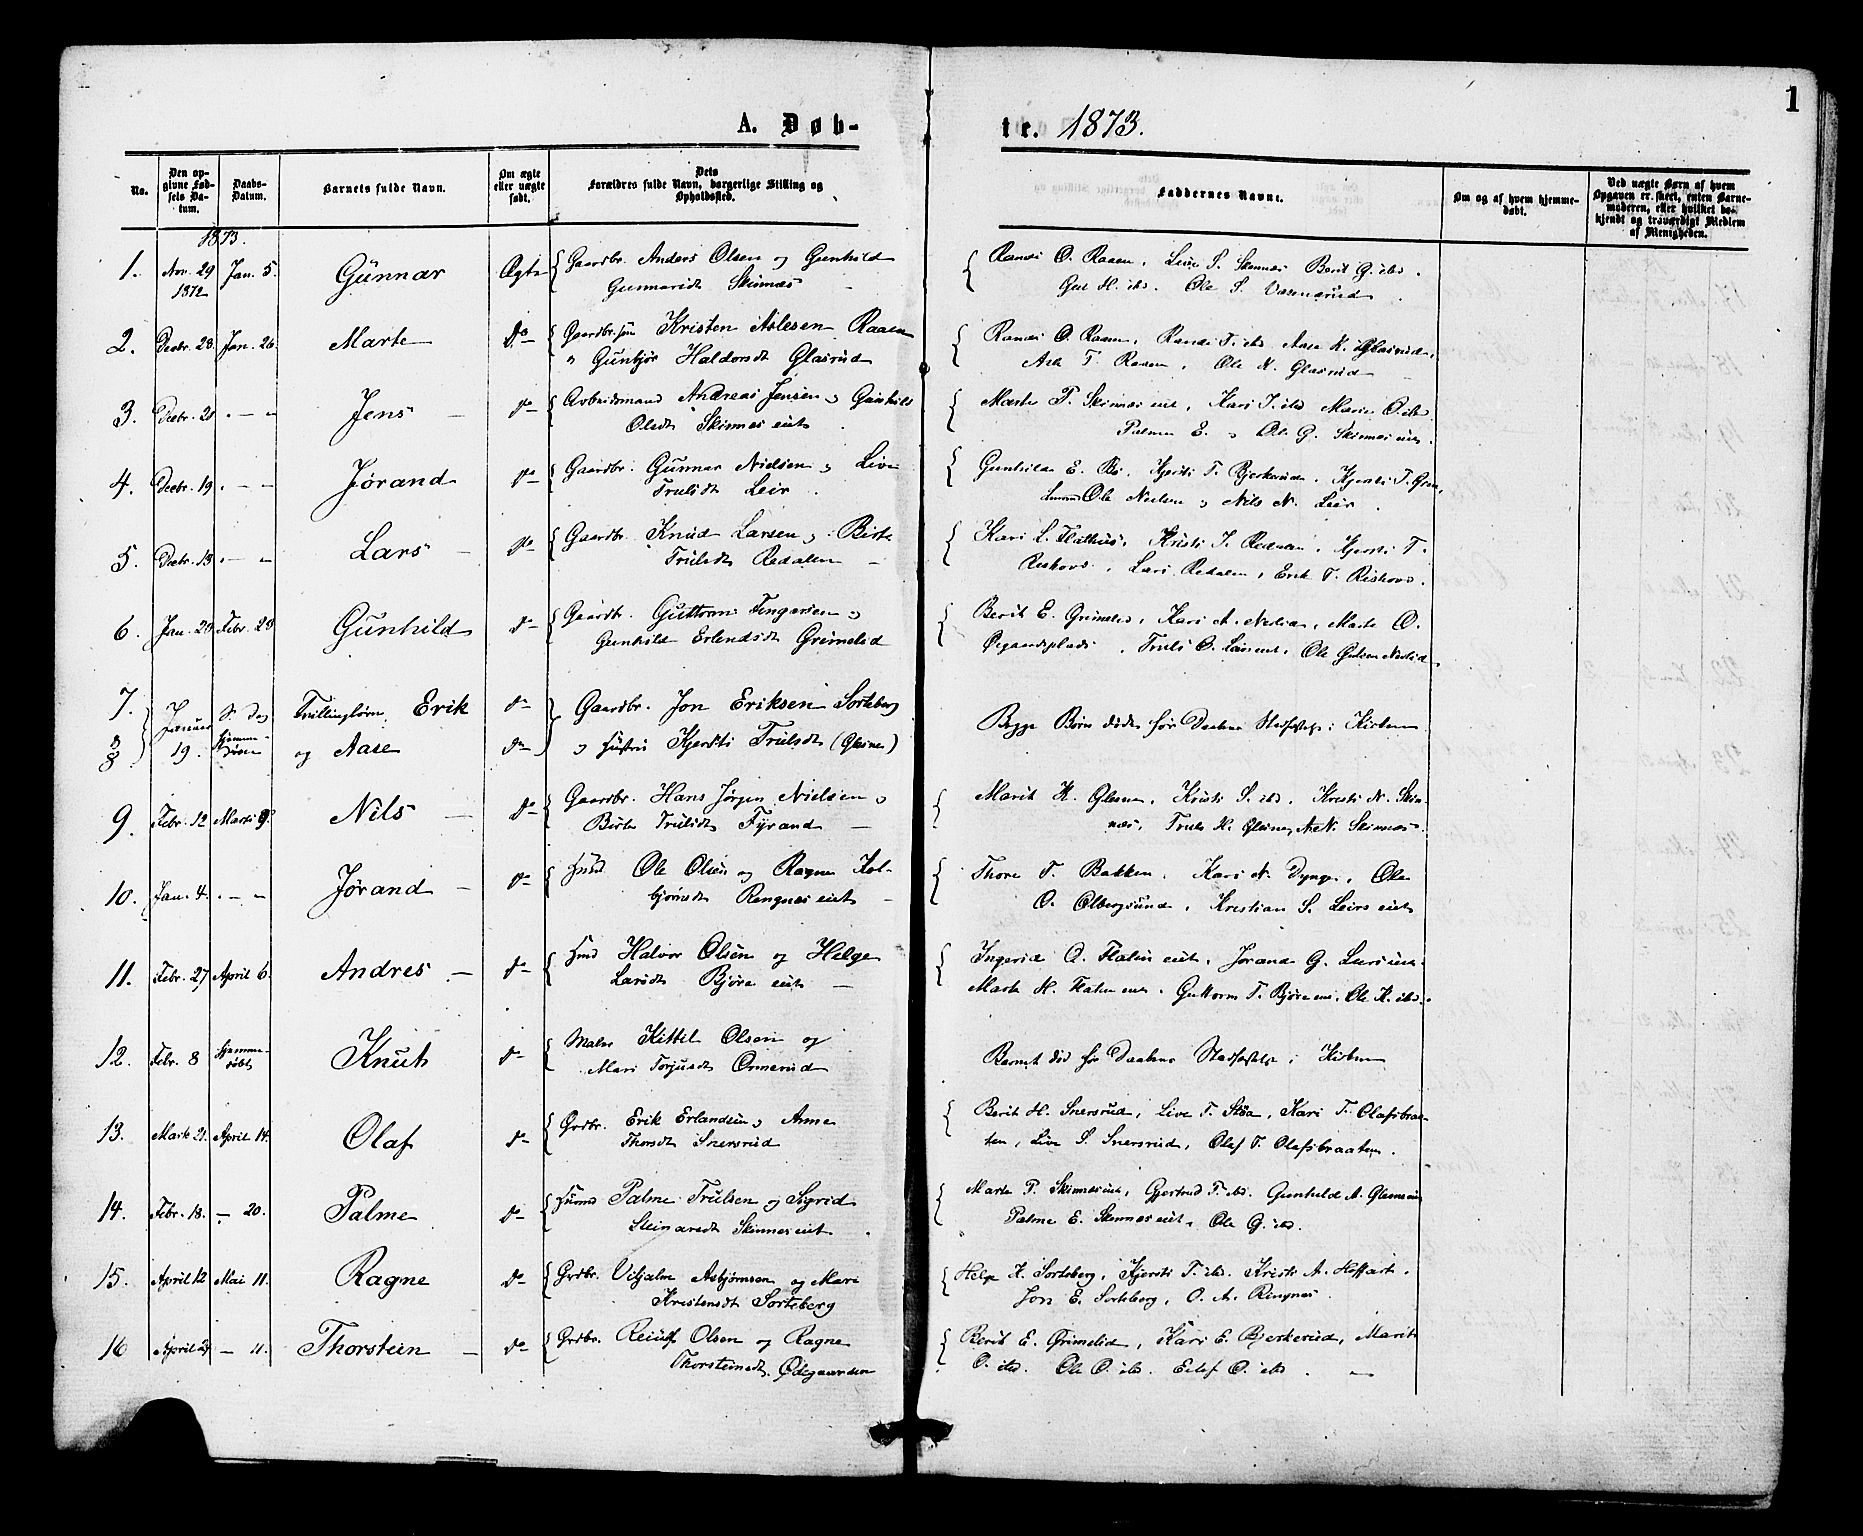 1
A. Døb-
te. 1873.
No.
Den op-
givne Fød-
sels Da-
tum.
Daabs-
Datum.
Barnets fulde Navn.
Om ægte
eller uægte
født.
Dets
Forældres fulde Navn, borgerlige Stilling og
Opholdssted.
Faddernes Navne.
Om og af hvem hjemme-
døbt.
Ved uægte Børn af hvem
Opgaven er skeet, enten Barne-
moderen, eller hvilket be-
kjendt og troværdigt Medlem
af Menigheden.
1873.
1. Nov. 29 1872 Jan. 5. Gunnar Ægte Gaardbr. Anders Olsen og Gunhild
Gunnarsdt Skinnæs
Randi O. Raaen, Live S. Skinnæs Berit G. ibd.
Gul H. ibd. Ole S.
2. Decbr. 28. Jan. 26. Marte do Gaardbr.søn Kristen Aslesen Raaen
" Gunbjør Haldorsdt Glasrud
Randi O. Raaen, Randi T. ibd. Aase K. Glasrud,
Ask T. Raaen, Ole K. Glasrud
3. Decbr. 21 " — " Jens do Arbeidsmand Andreas Jensen og Gunhild
Olsdt Skinnes eiet
Marte P. Skinnes eiet, Kari J. ibd. Marie O. ibd.
Palme E. og Ole G. Skinnes eiet.
4. Decbr. 19 " — " Jørand do Gaardbr. Gunnar Nielsen og Live
Trulsdt Leir
Gunhild E. Bø, Kjersti T. Bjerkerud, Kjersti T. Grøn-
Ole Nielsen og Nils N. Leir.
5. Decbr. 13 " — " Lars do Gaardbr. Knud Larsen og Birte
Trulsdt Redalen
Kari L. Flathus, Kristi J. Redalen, Kjersti T.
Riskovs, Lars Redalen, Erik T. Riskovs.
6. Jan. 29 Febr. 23 Gunhild do Gaardbr. Guttorm Fingarsen og
Gunhild Erlendsdt Grimelid
Berit E. Grimelid, Kari A. Neslia, Marte O.
Øegaardsplads, Truls O. eiet, Ole
7. 8 Januar 19. S. Dag Hjemme-
døbt Tvillingbørn Erik
og Aase do do Gaardbr. Jon Eriksen Sorteberg
og Hustru Kjersti Trulsdt (Glesne)
Begge Børn døde før Daabens Stadfæstelse i Kirken
9. Febr. 12 Marts 9. Nils do Gaardbr. Hans Jørgen Nielsen og
Birte Trulsdt Fyrand
Marit K. Glesne, Kristi S. ibd. Kristi N. Skin-
næs, Truls H. Glesne, A. N. Skinnæs.
10. Jan. 4. " — " Jørand do Husmd Ole Olsen og Ragne Kol-
bjørnsdt Rengnes eiet
Thore T. Bakken, Kari N. Dynge, Ole
O. Olbergsund, Kristian S. Leirs eiet
11. Febr. 27 April 6. Andres do Husmd Halvor Olsen og Helge
Larsdt Bjøre eiet
Ingerid O. Flaten eiet, Jørand G. eiet
Marte H. Flaten eiet, Guttorm T. Bjøre eie, Ole K. ibd.
12. Febr. 8 Hjemme-
døbt Knut do Maler Kittil Olsen og
Mari Torjusdt Ormerud
Barnet død før Daabens Stadfæstelse i Kirken
13. Marts 21. April 14. Olaf do Grdbr. Erik Erlandsen og Anne
Thorsdt Snersrud
Berit H. Snersrud, Live T. Støa, Kari T. Olafsbraa-
ten, Live S. Snersrud, Olaf T. Olafsbraaten.
14. Febr. 18. — 20. Palme do Husmd Palme Trulsen og Sigrid
Steinarsdt Skinnes eiet
Marte P. Skinnes eiet, Gjertrud T. ibd. Gunhild A. Glesne eie
Palme E. Skinnes eiet, Ole G. ibd.
15. April 12 Mai 11. Ragne do Grdbr. Vilhjalm Asbjørnsen og Mari
Kristensdt Sorteberg
Helge K. Sorteberg, Kjersti T. ibd. Kristi A. Hoffart.
Jon E. Sorteberg, O. A. Ringnes.
16 April 29 — 11. Thorstein do Grdbr. Reiulf Olsen og Ragne
Thorsteinsdt. Ødegaarden
Berit E. Grimelid, Kari E. Bjerkerud, Marit
O. ibd. Ole O. ibd. Eilef O. ibd.